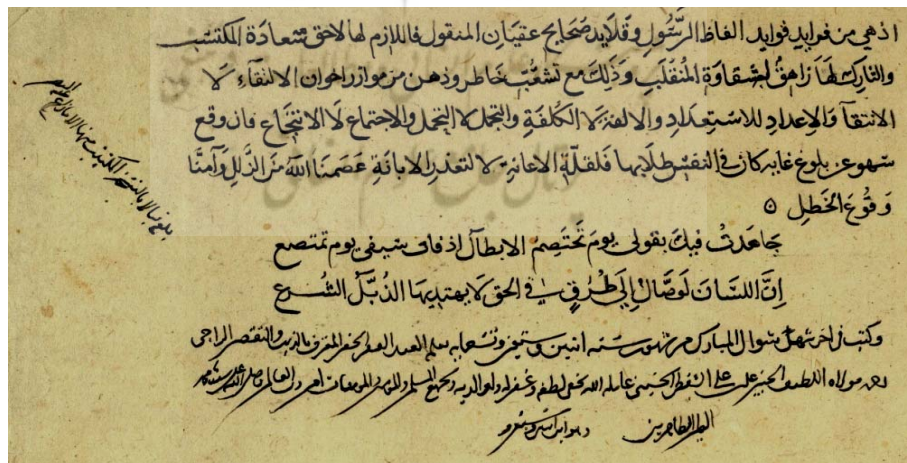 اذ هي من فرايد فوايد الفاظ الرسول وقلايد صحايح عقيان المنقول فاللازم لها لاحق بسعادة المكتسب
والتارك لها زاهق لشقاوة المنقلب وذلك مع تشعب خاطر وذهن من موازر اخوان الالتقاء لا
الانتقاء والاعداد للاستعداد والالفة لا الكلفة والتجمل لا التحمل والاجتماع لا الانتجاع فان وقع
سهو عن بلوغ غاية كان في النفس طلابها فلقلة الاعانة لا لتعذر الابانة عصمنا الله من الزلل وآمننا
وقوع الخطل ٥
جاهدت فيك بقولي يوم تختصم الابطال اذ فات سيفي يوم تمتصع
ان اللسان لوصال الى طرق في الحق لا يهتديها الذبل الشرع
وكتب في اخر شهر شوال المبارك من شهور سنة اثنين وستين وتسعمايه بقلم العبد الفقير الحقير المعترف بالذنب والتقصير الراجي
مولاه اللطيف الخبير علي بن الحسيني عامله الله بخفي لطفه وغفر له ولوالديه ولجميع المسلمين
اله الطاهرين